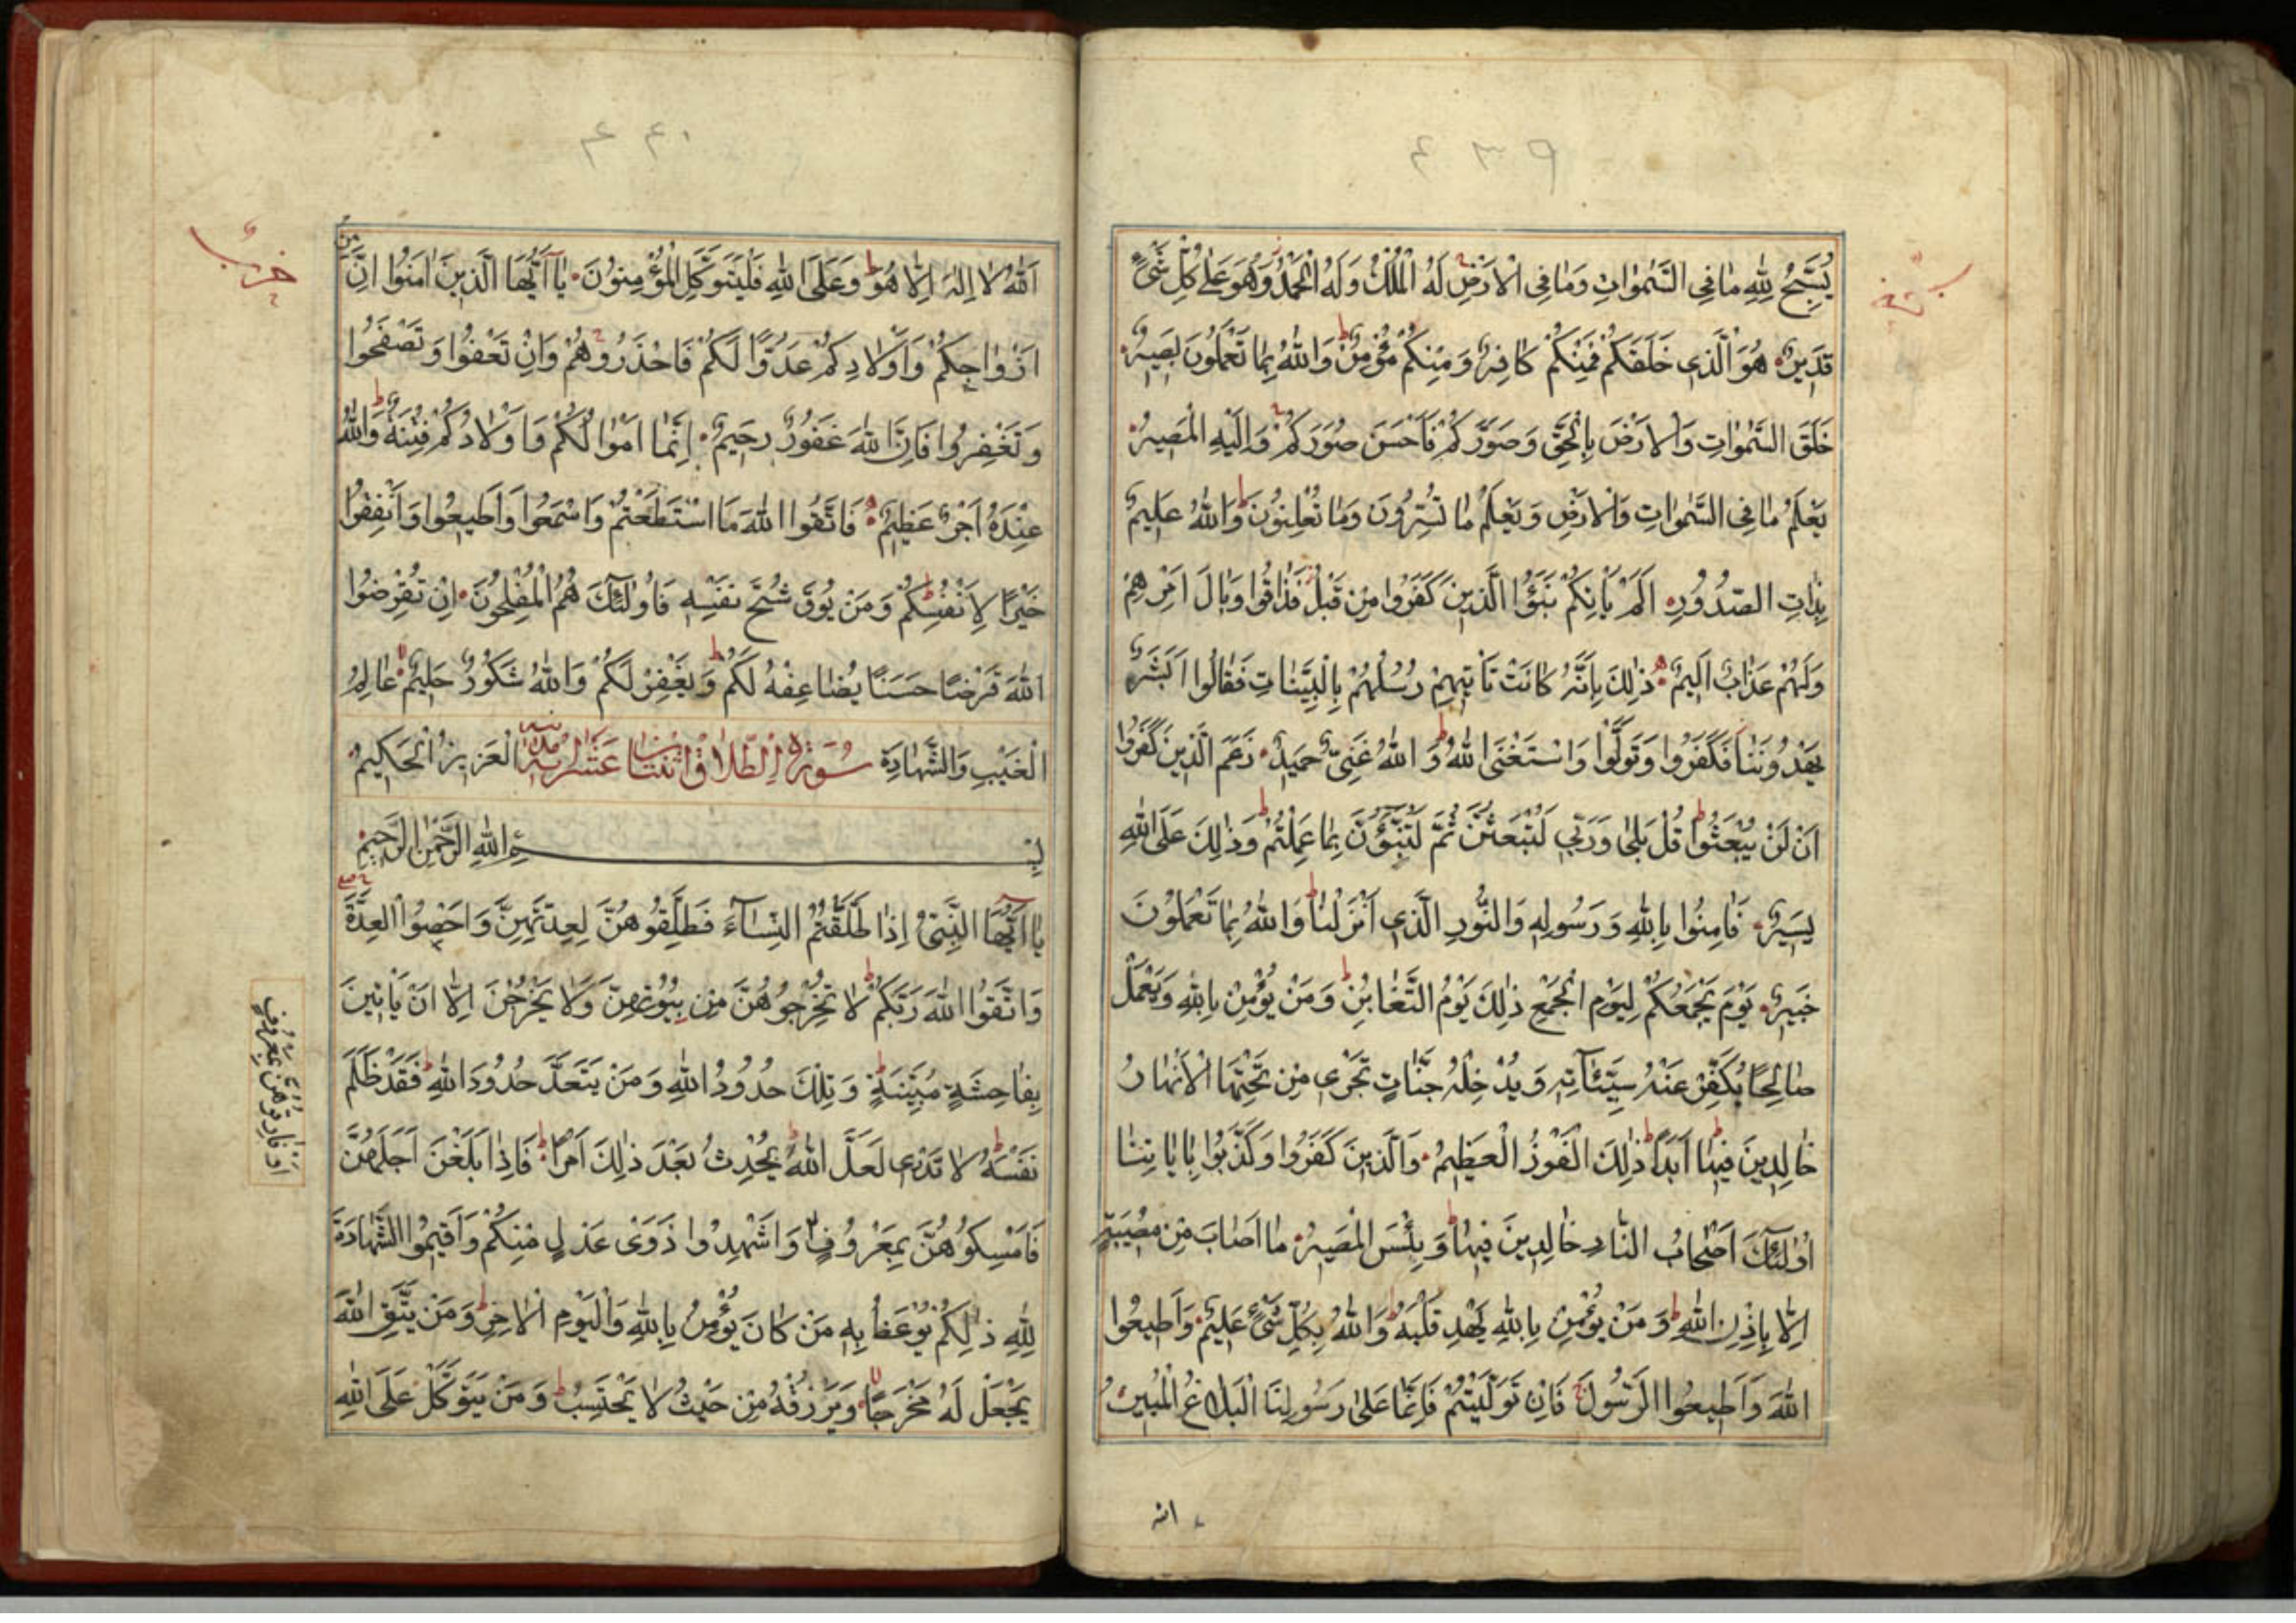 ٤٣٩
يُسَبِّحُ لِلّٰهِ مَا فِي السَّمٰوَاتِ وَمَا فِي الْاَرْضِ لَهُ الْمُلْكُ وَلَهُ الْحَمْدُ وَهُوَ عَلٰى كُلِّ شَيْءٍ
قَدِيرٌ هُوَ الَّذِي خَلَقَكُمْ فَمِنْكُمْ كَافِرٌ وَمِنْكُمْ مُؤْمِنٌ وَاللّٰهُ بِمَا تَعْمَلُونَ بَصِيرٌ
خَلَقَ السَّمٰوَاتِ وَالْاَرْضَ بِالْحَقِّ وَصَوَّرَكُمْ فَاَحْسَنَ صُوَرَكُمْ وَاِلَيْهِ الْمَصِيرُ
يَعْلَمُ مَا فِي السَّمٰوَاتِ وَالْاَرْضِ وَيَعْلَمُ مَا تُسِرُّونَ وَمَا تُعْلِنُونَ وَاللّٰهُ عَلِيمٌ
بِذَاتِ الصُّدُورِ اَلَمْ يَاْتِكُمْ نَبَؤُا الَّذِينَ كَفَرُوا مِنْ قَبْلُ فَذَاقُوا وَبَالَ اَمْرِهِمْ
وَلَهُمْ عَذَابٌ اَلِيمٌ ذٰلِكَ بِاَنَّهُ كَانَتْ تَاْتِيهِمْ رُسُلُهُمْ بِالْبَيِّنَاتِ فَقَالُوا اَبَشَرٌ
يَهْدُونَنَا فَكَفَرُوا وَتَوَلَّوْا وَاسْتَغْنَى اللّٰهُ وَاللّٰهُ غَنِيٌّ حَمِيدٌ زَعَمَ الَّذِينَ كَفَرُوا
اَنْ لَنْ يُبْعَثُوا قُلْ بَلٰى وَرَبِّي لَتُبْعَثُنَّ ثُمَّ لَتُنَبَّؤُنَّ بِمَا عَمِلْتُمْ وَذٰلِكَ عَلَى اللّٰهِ
يَسِيرٌ فَاٰمِنُوا بِاللّٰهِ وَرَسُولِهِ وَالنُّورِ الَّذِي اَنْزَلْنَا وَاللّٰهُ بِمَا تَعْمَلُونَ
خَبِيرٌ يَوْمَ يَجْمَعُكُمْ لِيَوْمِ الْجَمْعِ ذٰلِكَ يَوْمُ التَّغَابُنِ وَمَنْ يُؤْمِنْ بِاللّٰهِ وَيَعْمَلْ
صَالِحًا يُكَفِّرْ عَنْهُ سَيِّئَاتِهِ وَيُدْخِلْهُ جَنَّاتٍ تَجْرِي مِنْ تَحْتِهَا الْاَنْهَارُ
خَالِدِينَ فِيهَا اَبَدًا ذٰلِكَ الْفَوْزُ الْعَظِيمُ وَالَّذِينَ كَفَرُوا وَكَذَّبُوا بِاٰيَاتِنَا
اُولٰئِكَ اَصْحَابُ النَّارِ خَالِدِينَ فِيهَا وَبِئْسَ الْمَصِيرُ مَا اَصَابَ مِنْ مُصِيبَةٍ
اِلَّا بِاِذْنِ اللّٰهِ وَمَنْ يُؤْمِنْ بِاللّٰهِ يَهْدِ قَلْبَهُ وَاللّٰهُ بِكُلِّ شَيْءٍ عَلِيمٌ وَاَطِيعُوا
اللّٰهَ وَاَطِيعُوا الرَّسُولَ فَاِنْ تَوَلَّيْتُمْ فَاِنَّمَا عَلٰى رَسُولِنَا الْبَلَاغُ الْمُبِينُ
الله
٤٤٠
حزب
اَللّٰهُ لَا اِلٰهَ اِلَّا هُوَ وَعَلَى اللّٰهِ فَلْيَتَوَكَّلِ الْمُؤْمِنُونَ يَا اَيُّهَا الَّذِينَ اٰمَنُوا اِنَّ مِنْ
اَزْوَاجِكُمْ وَاَوْلَادِكُمْ عَدُوًّا لَكُمْ فَاحْذَرُوهُمْ وَاِنْ تَعْفُوا وَتَصْفَحُوا
وَتَغْفِرُوا فَاِنَّ اللّٰهَ غَفُورٌ رَحِيمٌ اِنَّمَا اَمْوَالُكُمْ وَاَوْلَادُكُمْ فِتْنَةٌ وَاللّٰهُ
عِنْدَهُ اَجْرٌ عَظِيمٌ فَاتَّقُوا اللّٰهَ مَا اسْتَطَعْتُمْ وَاسْمَعُوا وَاَطِيعُوا وَاَنْفِقُوا
خَيْرًا لِاَنْفُسِكُمْ وَمَنْ يُوقَ شُحَّ نَفْسِهِ فَاُولٰئِكَ هُمُ الْمُفْلِحُونَ اِنْ تُقْرِضُوا
اللّٰهَ قَرْضًا حَسَنًا يُضَاعِفْهُ لَكُمْ وَيَغْفِرْ لَكُمْ وَاللّٰهُ شَكُورٌ حَلِيمٌ عَالِمُ
الْغَيْبِ وَالشَّهَادَةِ سُورَةُ الطَّلَاقِ اثنتا عشر اية مدنية الْعَزِيزُ الْحَكِيمُ
بِسْمِ اللّٰهِ الرَّحْمٰنِ الرَّحِيمِ
يَا اَيُّهَا النَّبِيُّ اِذَا طَلَّقْتُمُ النِّسَاءَ فَطَلِّقُوهُنَّ لِعِدَّتِهِنَّ وَاَحْصُوا الْعِدَّةَ
وَاتَّقُوا اللّٰهَ رَبَّكُمْ لَا تُخْرِجُوهُنَّ مِنْ بُيُوتِهِنَّ وَلَا يَخْرُجْنَ اِلَّا اَنْ يَاْتِينَ
بِفَاحِشَةٍ مُبَيِّنَةٍ وَتِلْكَ حُدُودُ اللّٰهِ وَمَنْ يَتَعَدَّ حُدُودَ اللّٰهِ فَقَدْ ظَلَمَ
نَفْسَهُ لَا تَدْرِي لَعَلَّ اللّٰهَ يُحْدِثُ بَعْدَ ذٰلِكَ اَمْرًا فَاِذَا بَلَغْنَ اَجَلَهُنَّ
فَاَمْسِكُوهُنَّ بِمَعْرُوفٍ وَاَشْهِدُوا ذَوَيْ عَدْلٍ مِنْكُمْ وَاَقِيمُوا الشَّهَادَةَ
لِلّٰهِ ذٰلِكُمْ يُوعَظُ بِهِ مَنْ كَانَ يُؤْمِنُ بِاللّٰهِ وَالْيَوْمِ الْاٰخِرِ وَمَنْ يَتَّقِ اللّٰهَ
يَجْعَلْ لَهُ مَخْرَجًا وَيَرْزُقْهُ مِنْ حَيْثُ لَا يَحْتَسِبُ وَمَنْ يَتَوَكَّلْ عَلَى اللّٰهِ
فَارِقُوهُنَّ بِمَعْرُوفٍ